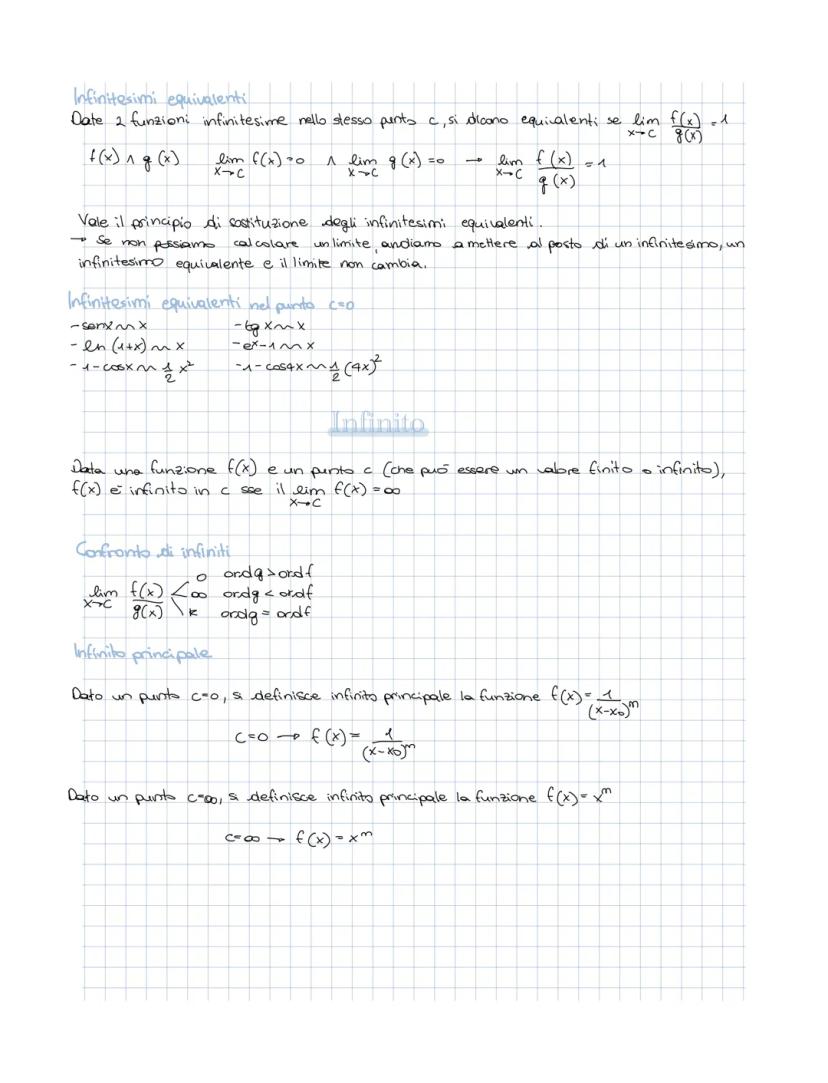 Infinitesimi equivalenti
Date 2 funzioni infinitesime nello stesso punto c, si dicono equivalenti se lim x→c f(x)/g(x) = 1
f(x) ∧ g(x) lim x→c f(x) = 0 ∧ lim x→c g(x) = 0 → lim x→c f(x)/g(x) = 1
Vale il principio di sostituzione degli infinitesimi equivalenti.
→ Se non possiamo calcolare un limite, andiamo a mettere al posto di un infinitesimo, un
infinitesimo equivalente e il limite non cambia.
Infinitesimi equivalenti nel punto c=0
- senx ~ x - tg x ~ x
- ln (1+x) ~ x - e^x - 1 ~ x
- 1 - cosx ~ 1/2 x² - 1 - cos4x ~ 1/2 (4x)²
Infinito
Data una funzione f(x) e un punto c (che può essere un valore finito o infinito),
f(x) è infinito in c sse il lim x→c f(x) = ∞
Confronto di infiniti
lim x→c f(x)/g(x) 0 ordg > ordf
∞ ordg < ordf
k ordg = ordf
Infinito principale
Dato un punto c=0, si definisce infinito principale la funzione f(x) = 1/(x-x₀)^m
c=0 → f(x) = 1/(x-x₀)^m
Dato un punto c=∞, si definisce infinito principale la funzione f(x) = x^m
c=∞ → f(x) = x^m